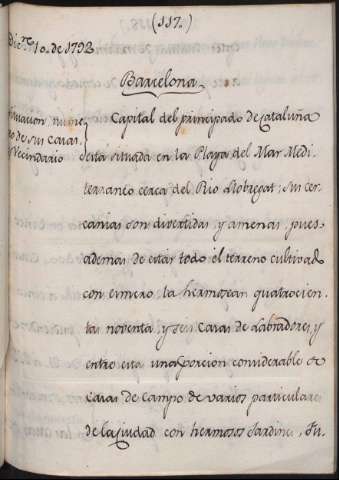 (117.)
Dic.re 10. de 1792
Barcelona
Situación nume
ro de sus Casas,
y Vecindario
Capital del principado de Cataluña
esta situada en la Playa del Mar Medi
terraneo cerca del Rio Llobregat; sus cer
canias son divertidas, y amenas, pues
ademas de estàr todo el terreno cultivad
con esmero, la hermosean quatrocien
tas noventa, y seis Casas de Labradores, y
entre esta una porcion considerable de
casas de campo de varios particulare
de la Ciudad con hermosos Jardine, Fu